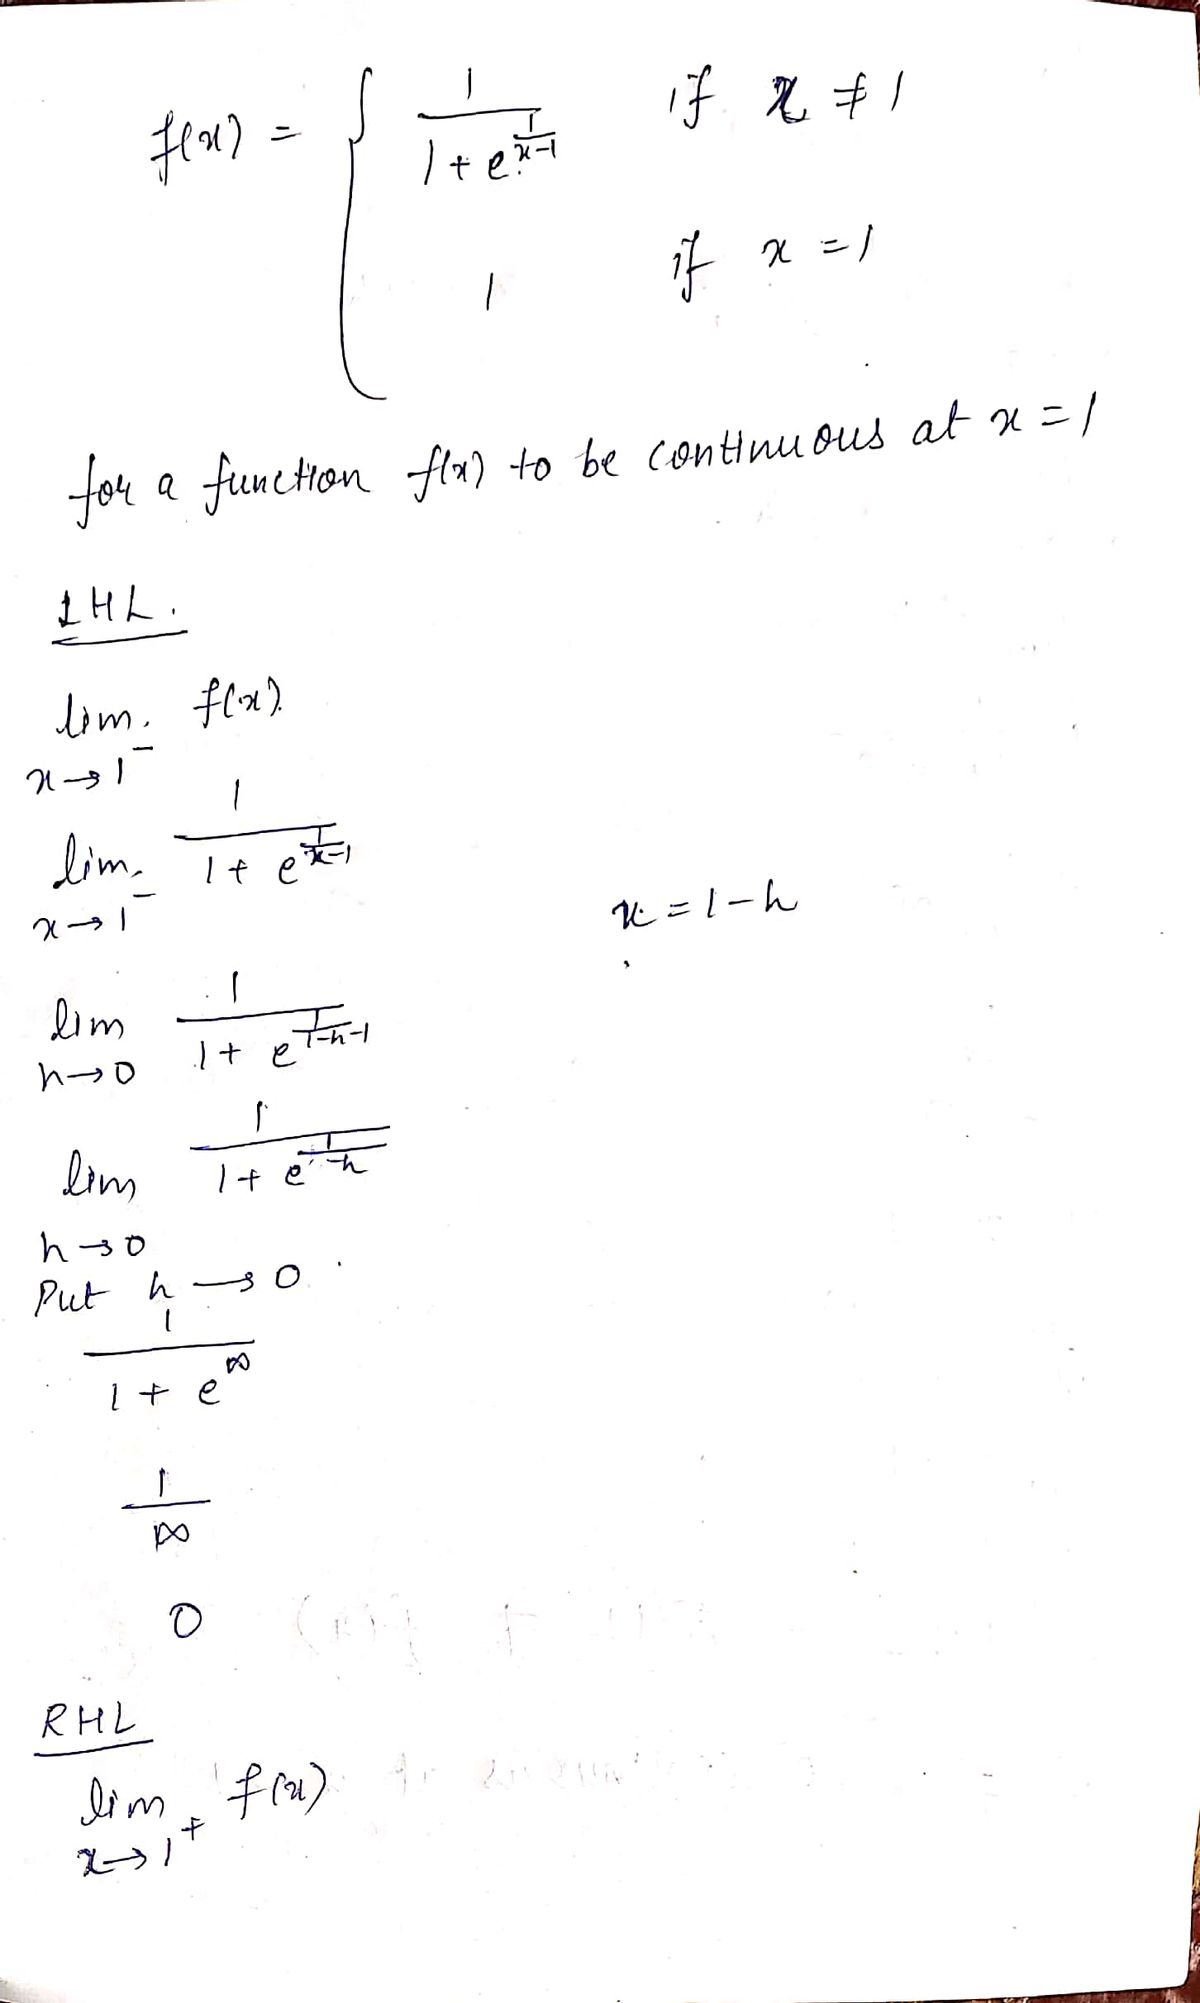 f(x) = { 1 / (1 + e^(1/(x-1))) if x ≠ 1
1 if x = 1
for a function f(x) to be continuous at x = 1
LHL.
lim f(x)
x→1⁻
lim 1 / (1 + e^(1/(x-1)))
x→1⁻
x = 1-h
lim 1 / (1 + e^(1/(1-h-1)))
h→0
lim 1 / (1 + e^(1/-h))
h→0
Put h → 0
1 / (1 + e^∞)
1 / ∞
0
RHL
lim f(x)
x→1⁺